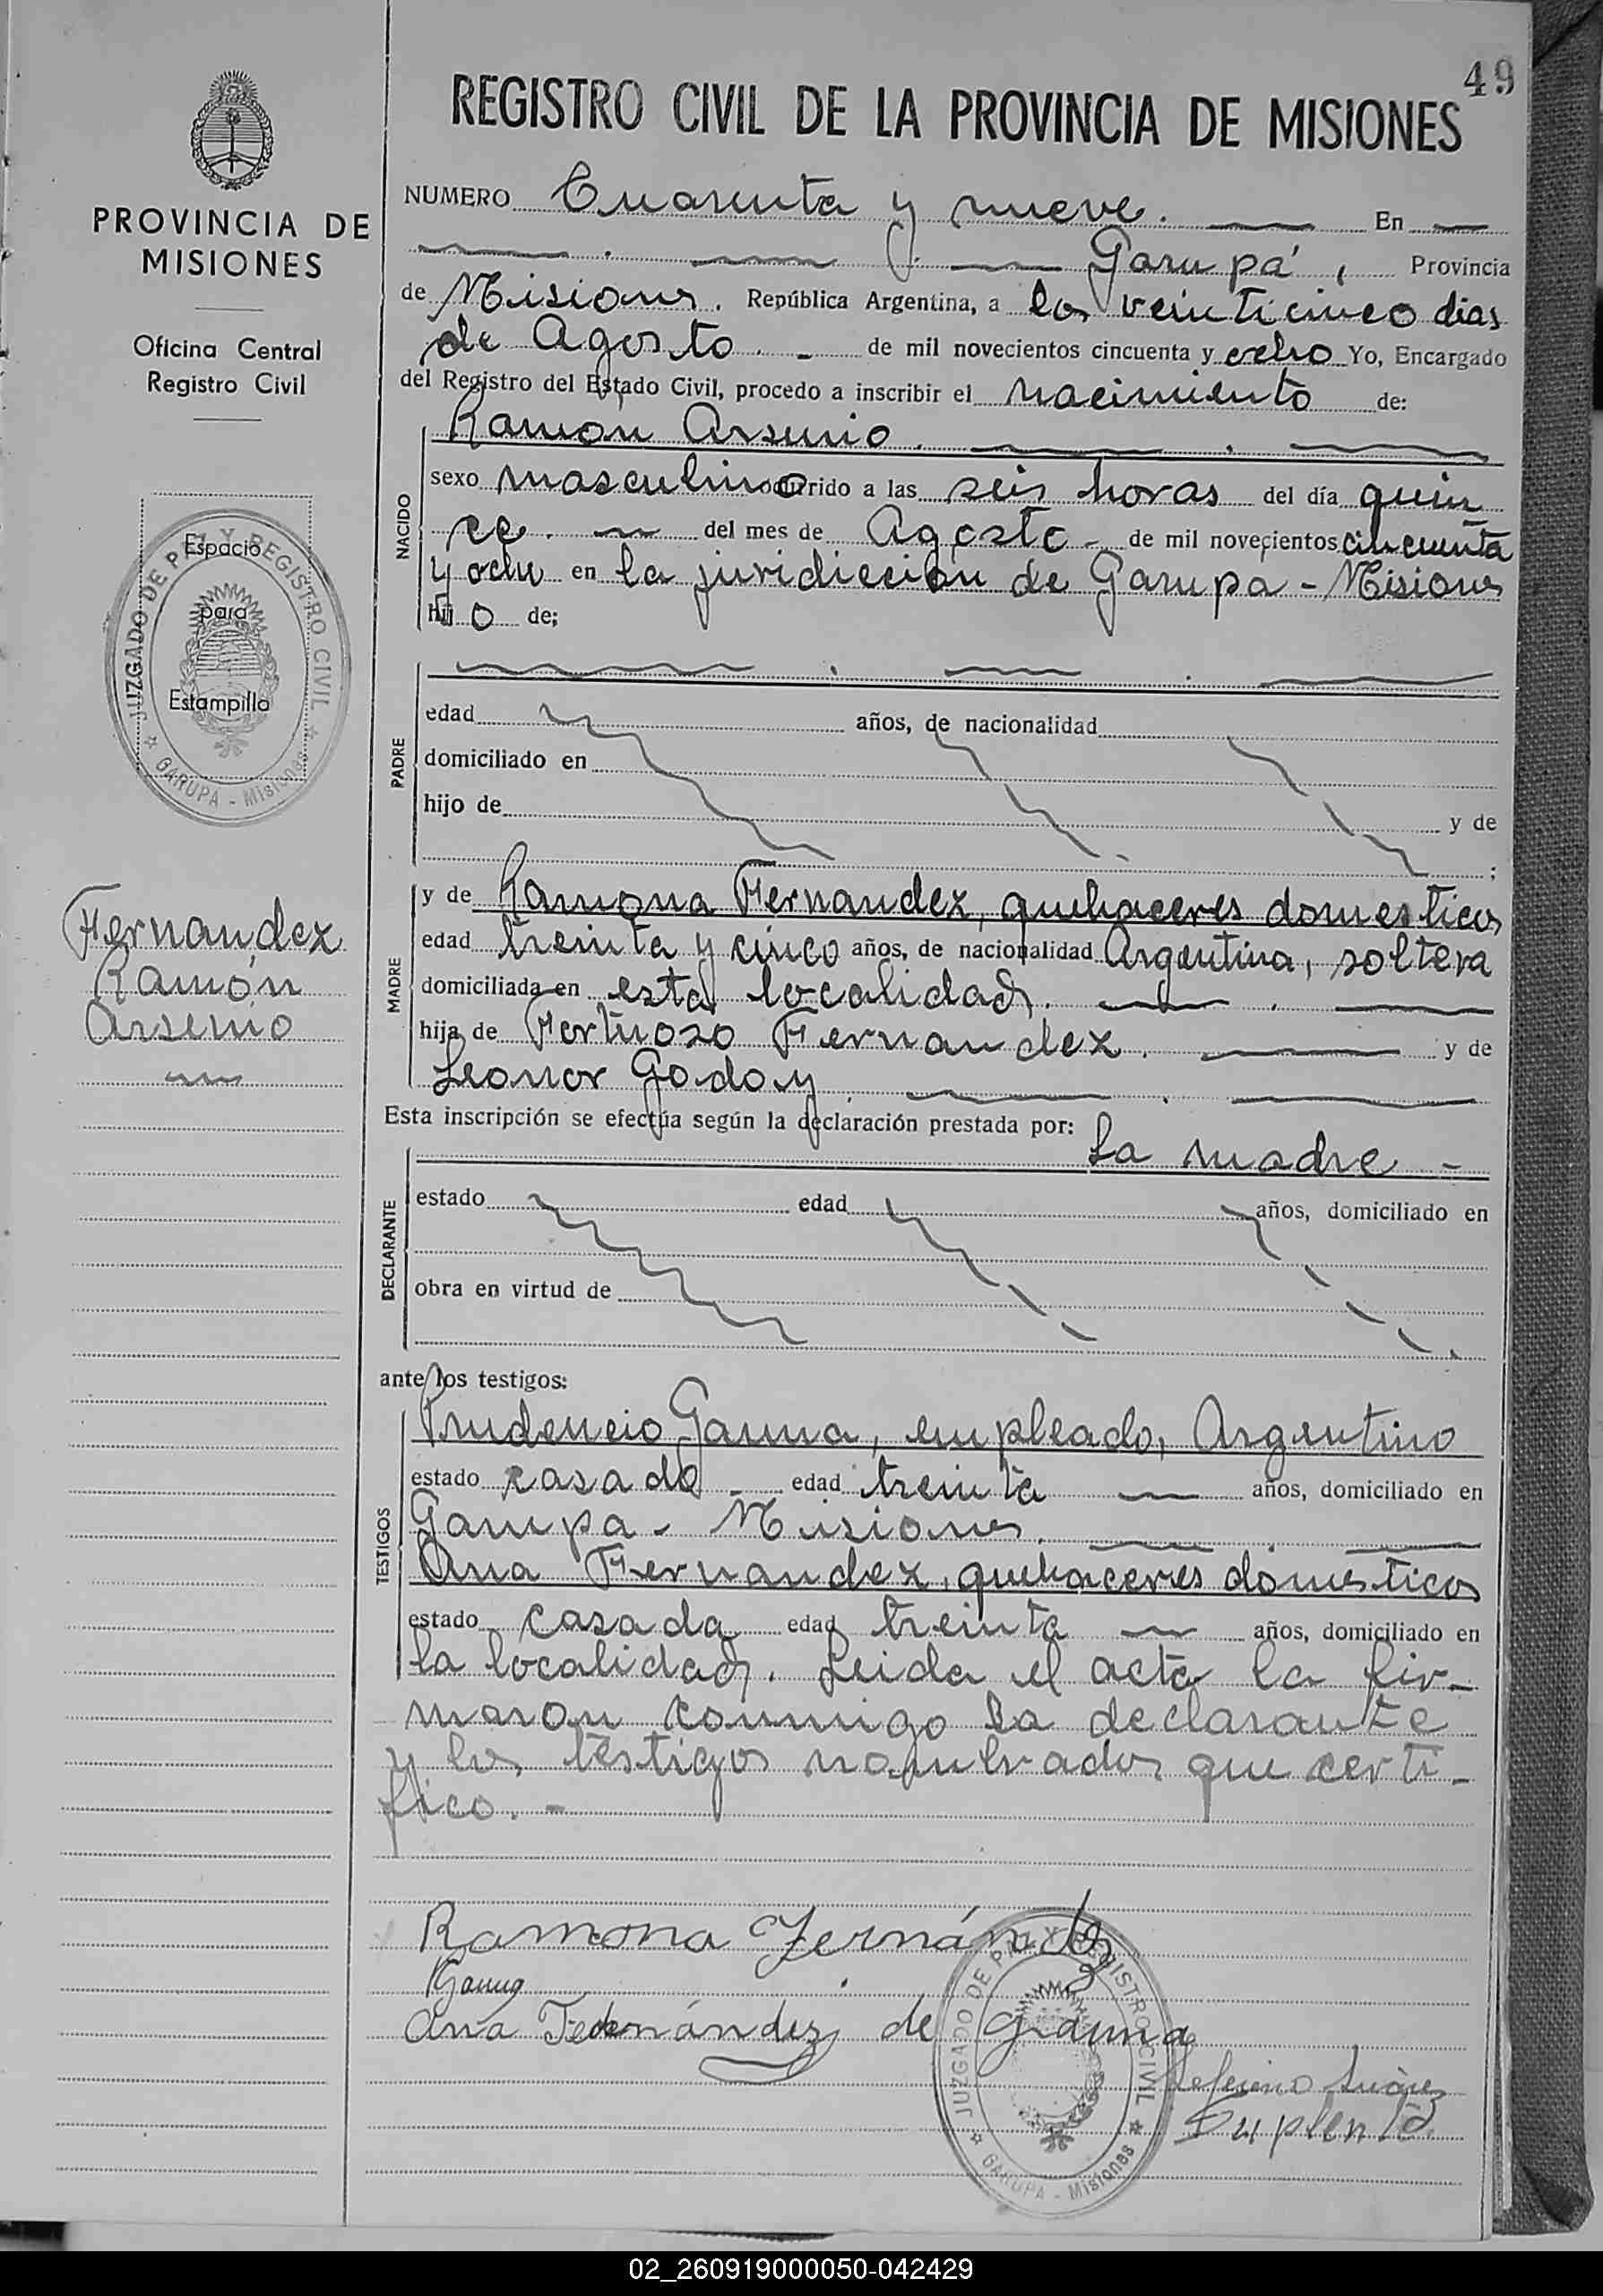 49
REGISTRO CIVIL DE LA PROVINCIA DE MISIONES
PROVINCIA DE
MISIONES
Oficina Central
Registro Civil
JUZGADO DE PAZ Y REGISTRO CIVIL
GARUPA - Misiones
Espacio
para
Estampilla
Fernandez
Ramón
Arsenio
NUMERO Cuarenta y nueve. En
Garupá, Provincia
de Misiones. República Argentina, a los veinticinco dias
de Agosto. - de mil novecientos cincuenta y ocho Yo, Encargado
del Registro del Estado Civil, procedo a inscribir el nacimiento de:
NACIDO
Ramon Arsenio.
sexo masculino ocurrido a las seis horas del día quin
ce. del mes de Agosto - de mil novecientos cincuenta
y ocho en la juridiccion de Garupa - Misiones
hijo de;
PADRE
edad años, de nacionalidad
domiciliado en
hijo de y de
;
MADRE
y de Ramona Fernandez, quehaceres domesticos
edad treinta y cinco años, de nacionalidad Argentina, soltera
domiciliada en esta localidad.
hija de Fortuoso Fernandez. y de
Leonor Godoy.
Esta inscripción se efectúa según la declaración prestada por:
La madre -
DECLARANTE
estado edad años, domiciliado en
obra en virtud de
ante los testigos:
TESTIGOS
Prudencio Gauna, empleado, Argentino
estado casado - edad treinta años, domiciliado en
Garupa - Misiones.
Ana Fernandez, quehaceres domesticos
estado casada edad treinta años, domiciliado en
la localidad. Leida el acta la fir-
maron conmigo la declarante
y los testigos nombrados que certi-
fico. -
Ramona Fernández
Gauna
Ana Fernández de Gauna
JUZGADO DE PAZ Y REGISTRO CIVIL
GARUPA - Misiones
Suárez
Suplente
02_260919000050-042429